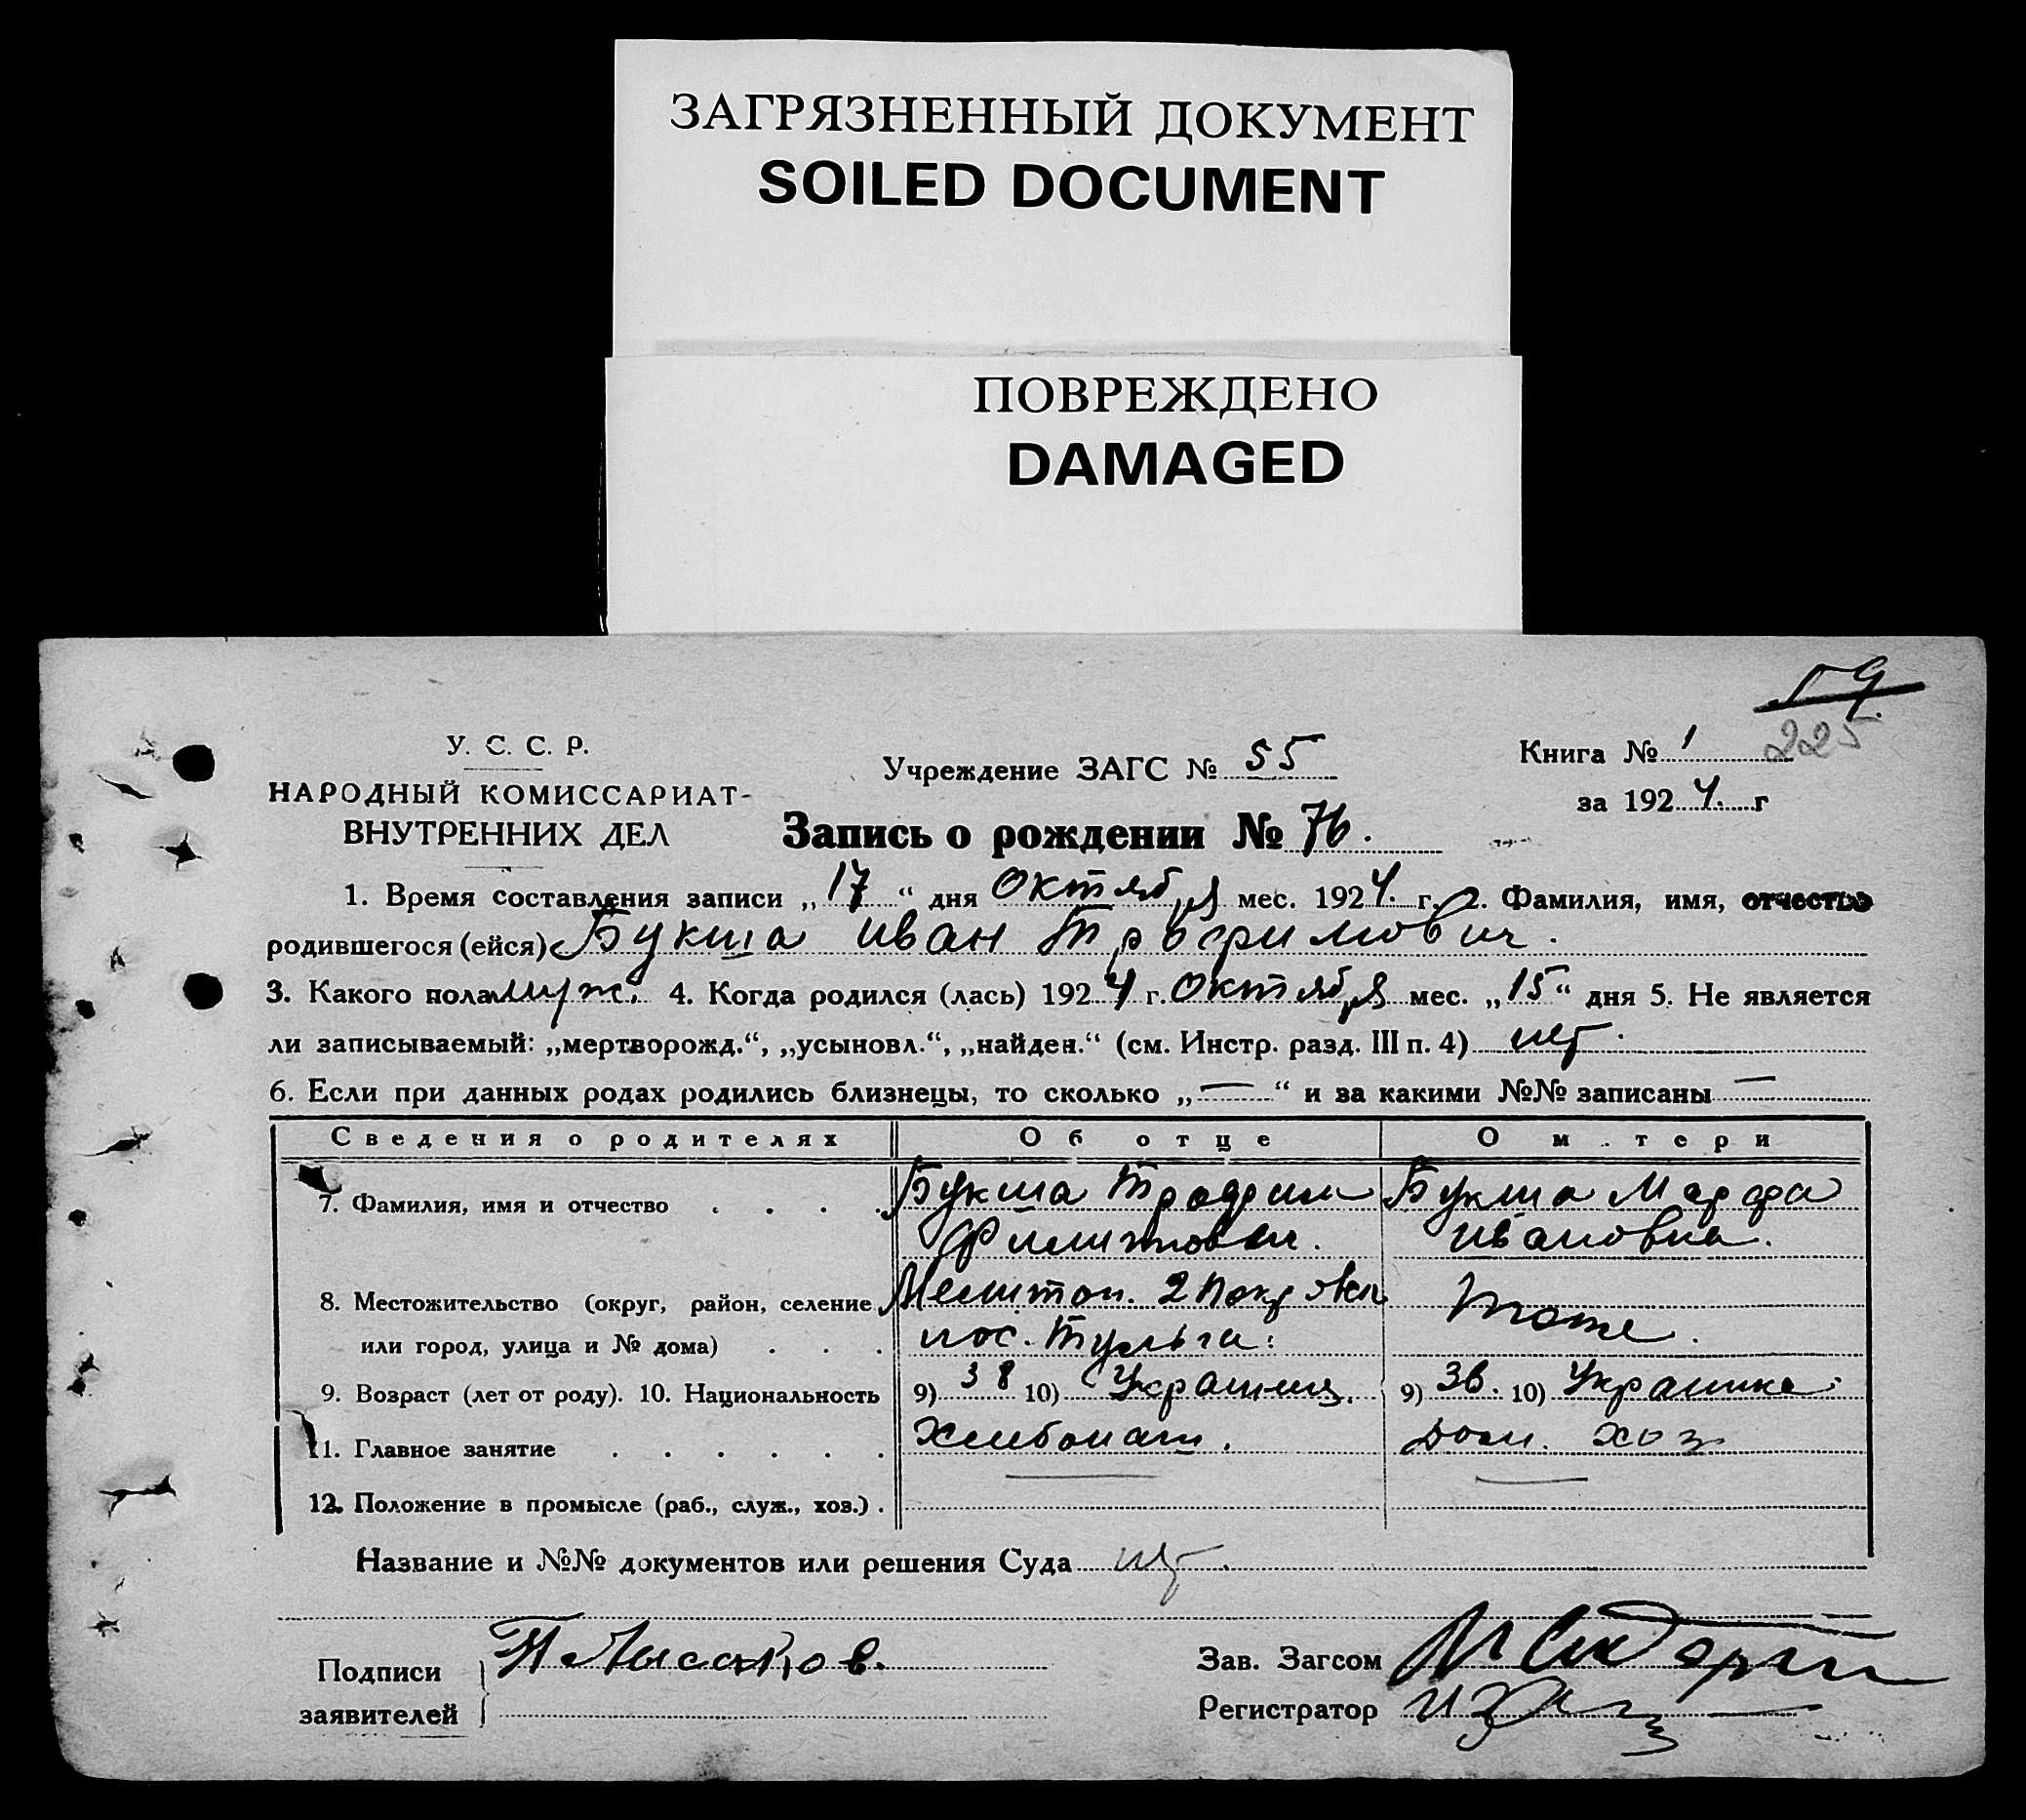 ЗАГРЯЗНЕННЫЙ ДОКУМЕНТ
SOILED DOCUMENT
ПОВРЕЖДЕНО
DAMAGED
59
225
У. С. С. Р.
НАРОДНЫЙ КОМИССАРИАТ
ВНУТРЕННИХ ДЕЛ
Учреждение ЗАГС № 55
Книга № 1
за 1924. г
Запись о рождении № 76.
1. Время составления записи „17“ дня Октября мес. 1924. г. 2. Фамилия, имя, отчество
родившегося (ейся) Букша Иван Трофимович.
3. Какого пола муж. 4. Когда родился (лась) 1924 г. Октября мес. „15“ дня 5. Не является
ли записываемый: „мертворожд.“, „усыновл.“, „найден.“ (см. Инстр. разд. III п. 4) нет.
6. Если при данных родах родились близнецы, то сколько „—“ и за какими №№ записаны —
Сведения о родителях Об отце О м тери
7. Фамилия, имя и отчество . . . . Букша Трофим Букша Марфа
Филиппович. Ивановна.
8. Местожительство (округ, район, селение Мелитоп. 2 Покровск
или город, улица и № дома) . . . пос. Тоже.
9. Возраст (лет от роду). 10. Национальность 9) 38 10) Украинец. 9) 36. 10) Украинка.
11. Главное занятие . . . . . . Хлебопаш. Дом. хоз
12. Положение в промысле (раб., служ., хоз.) .
Название и №№ документов или решения Суда нет.
Подписи
заявителей
Зав. Загсом
Регистратор